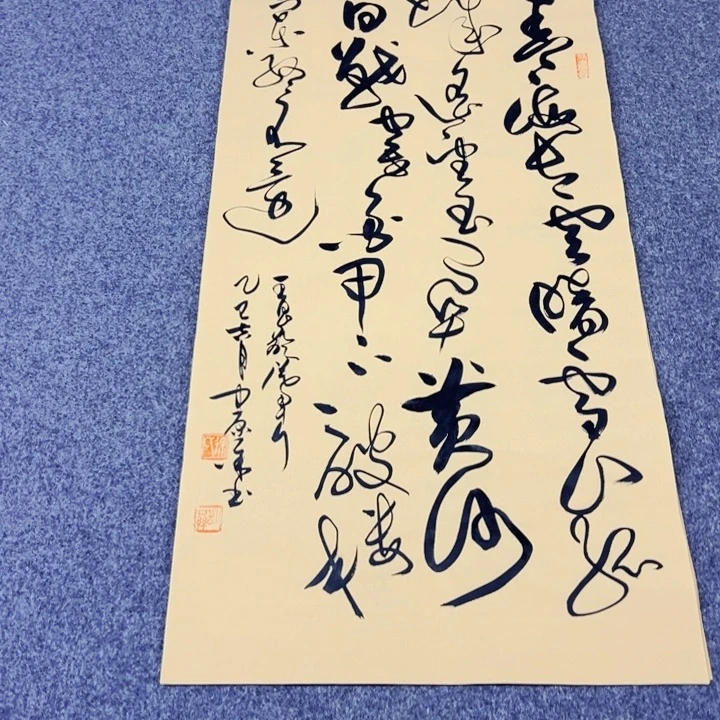 青海长云暗雪山孤
城遥望玉门关黄沙
百战穿金甲不破楼
兰终不还
王昌龄从军行
乙巳六月中原书